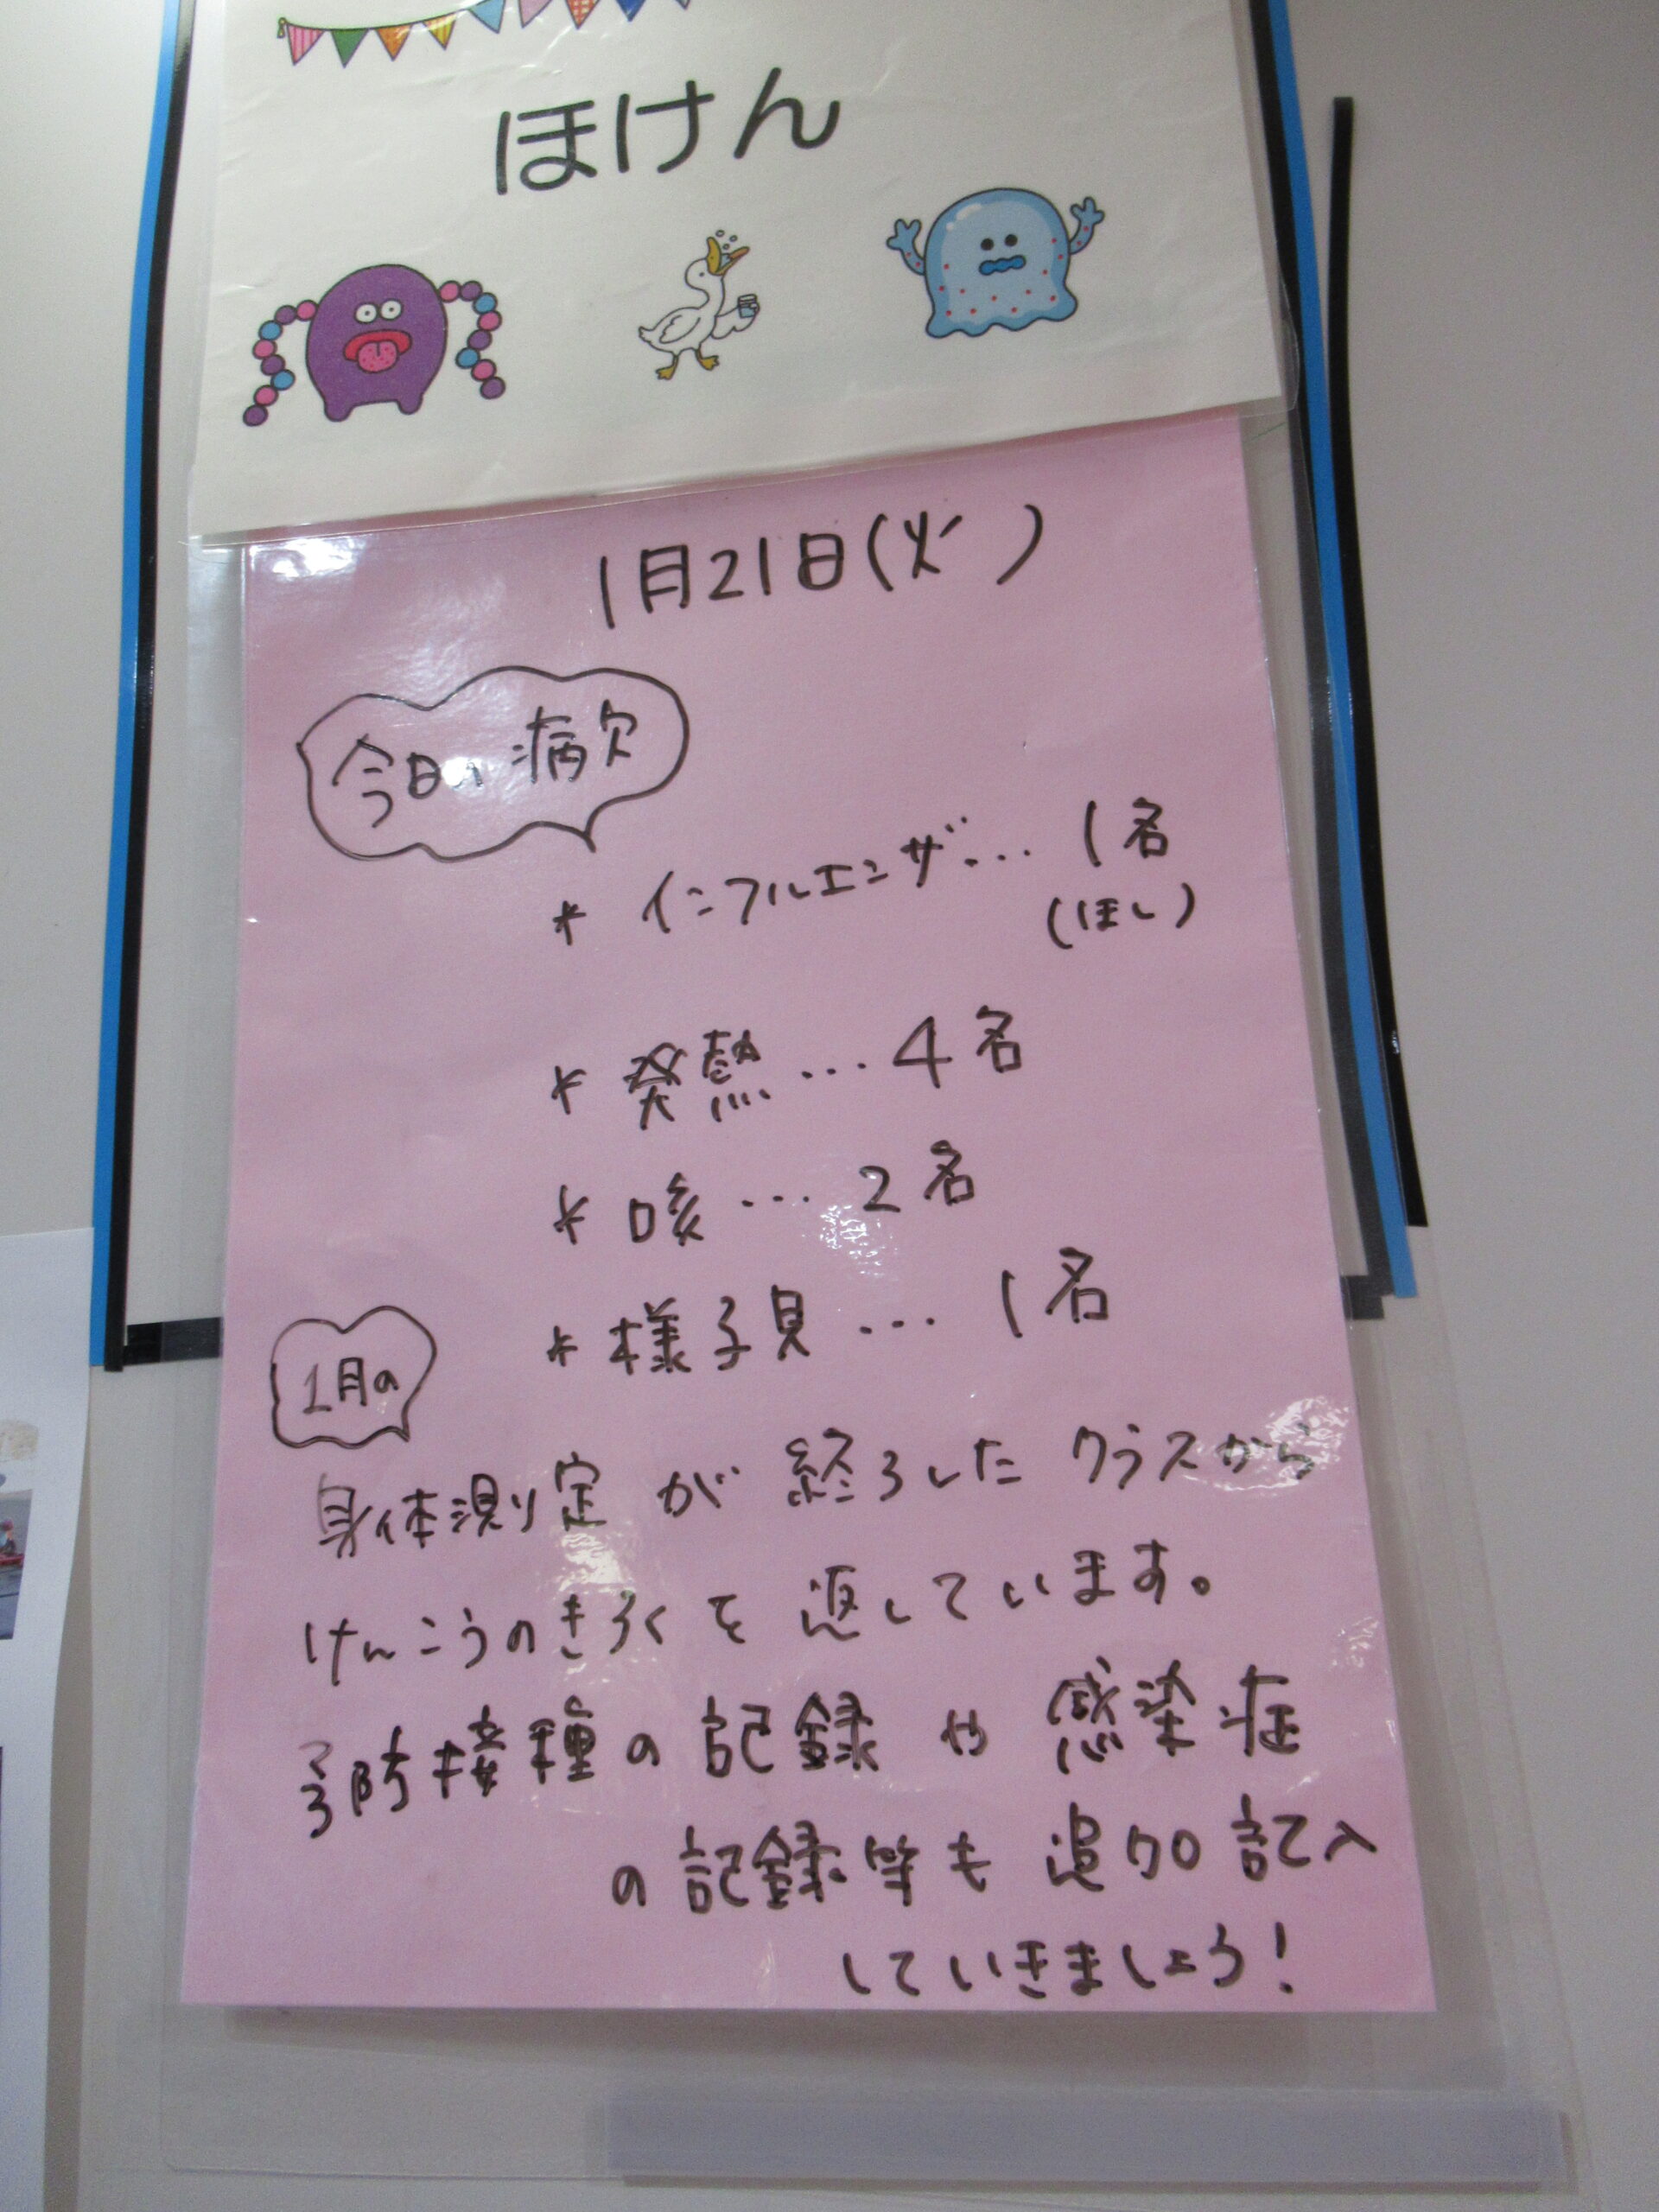 ほけん
1月21日(火)
今日の病欠
* インフルエンザ… 1名
(ほし)
* 発熱…4名
* 咳…2名
* 様子見…1名
1月の
身体測定が終ろしたクラスから
けんこうのきろくを返しています。
予防接種の記録や感染症
の記録等も追加記入
していきましょう!